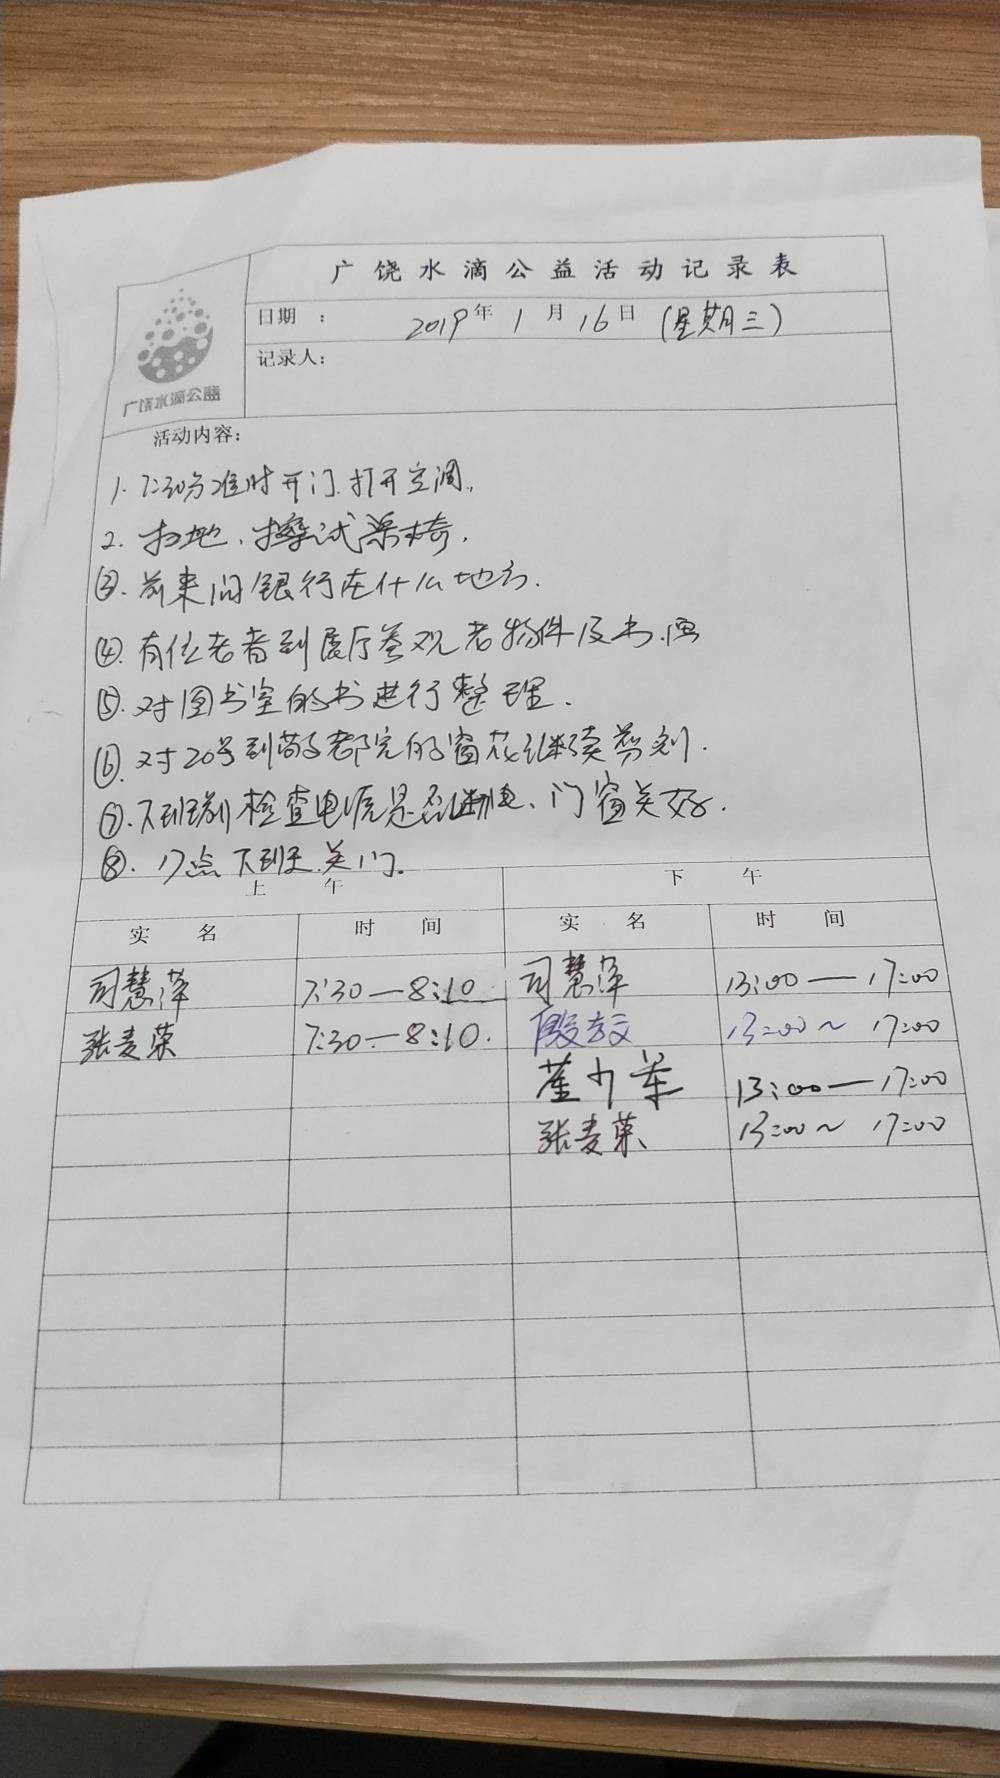 广饶水滴公益活动记录表
广饶水滴公益
日期 : 2019年 1月 16日 (星期三)
记录人:
活动内容:
1. 7:30分准时开门.打开空调.
2. 扫地、擦试桌椅.
③. 前来问银行在什么地方.
④. 有位老者到展厅参观老物件及书.画
⑤. 对图书室的书进行整理.
⑥. 对20号到敬老院的窗花继续剪刻.
⑦. 下班前检查电源是否断电、门窗关好.
⑧. 17点下班.关门.
上 午 下 午
实 名 时 间 实 名 时 间
司慧泽 7:30—8:10 司慧泽 13:00—17:00
张麦荣 7:30—8:10. 13:00~17:00
13:00—17:00
张麦荣 13:00~17:00